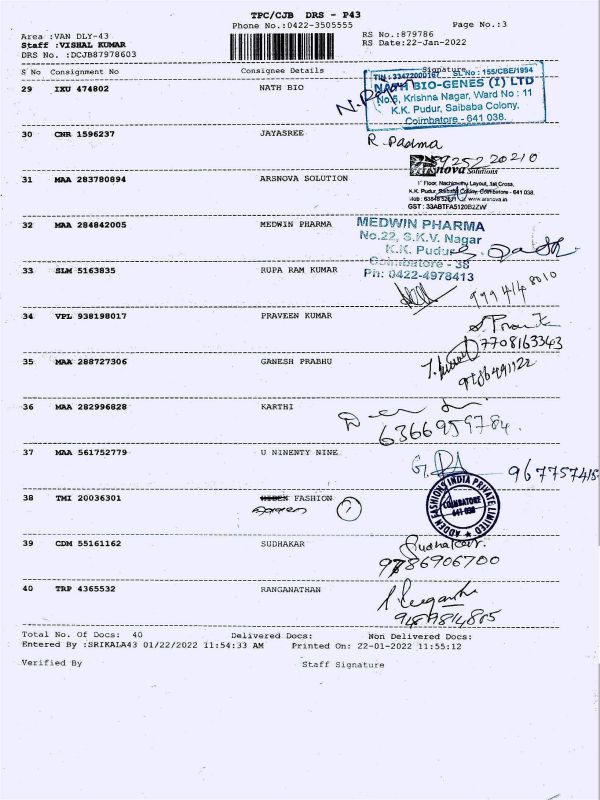 TPC/CJB DRS - P43
Phone No.:0422-3505555 Page No.:3
Area :VAN DLY-43 RS No.:879786
Staff :VISHAL KUMAR RS Date:22-Jan-2022
DRS No. :DCJB87978603
S No Consignment No Consignee Details Signature
TIN : 33472000167 SL No : 155/CBE/1994
29 IXU 474802 NATH BIO NATH BIO-GENES (I) LTD
No.5, Krishna Nagar, Ward No : 11
K.K. Pudur, Saibaba Colony,
Coimbatore - 641 038.
30 CNR 1596237 JAYASREE R. Padma
9252220210
31 MAA 283780894 ARSNOVA SOLUTION Arsnova Solutions
1st Floor, Nachimuthu Layout, 1st Cross,
K.K. Pudur, Saibaba Colony, Coimbatore - 641 038.
www.arsnova.in
GST : 33ABTFA5120B2ZW
32 MAA 284842005 MEDWIN PHARMA MEDWIN PHARMA
No.22, S.K.V. Nagar
K.K. Pudur
Coimbatore - 38
33 SLM 5163835 RUPA RAM KUMAR Ph: 0422-4978413
9994148010
34 VPL 938198017 PRAVEEN KUMAR
7708163343
35 MAA 288727306 GANESH PRABHU
9786491122
36 MAA 282996828 KARTHI
6366959784.
37 MAA 561752779 U NINENTY NINE
967757415
38 TMI 20036301 FASHION 1
Adden
ADDEN FASHIONS INDIA PRIVATE LIMITED
COIMBATORE
641 038
39 CDM 55161162 SUDHAKAR Sudhakar.
9786906700
40 TRP 4365532 RANGANATHAN
9489814885
Total No. Of Docs: 40 Delivered Docs: Non Delivered Docs:
Entered By :SRIKALA43 01/22/2022 11:54:33 AM Printed On: 22-01-2022 11:55:12
Verified By Staff Signature